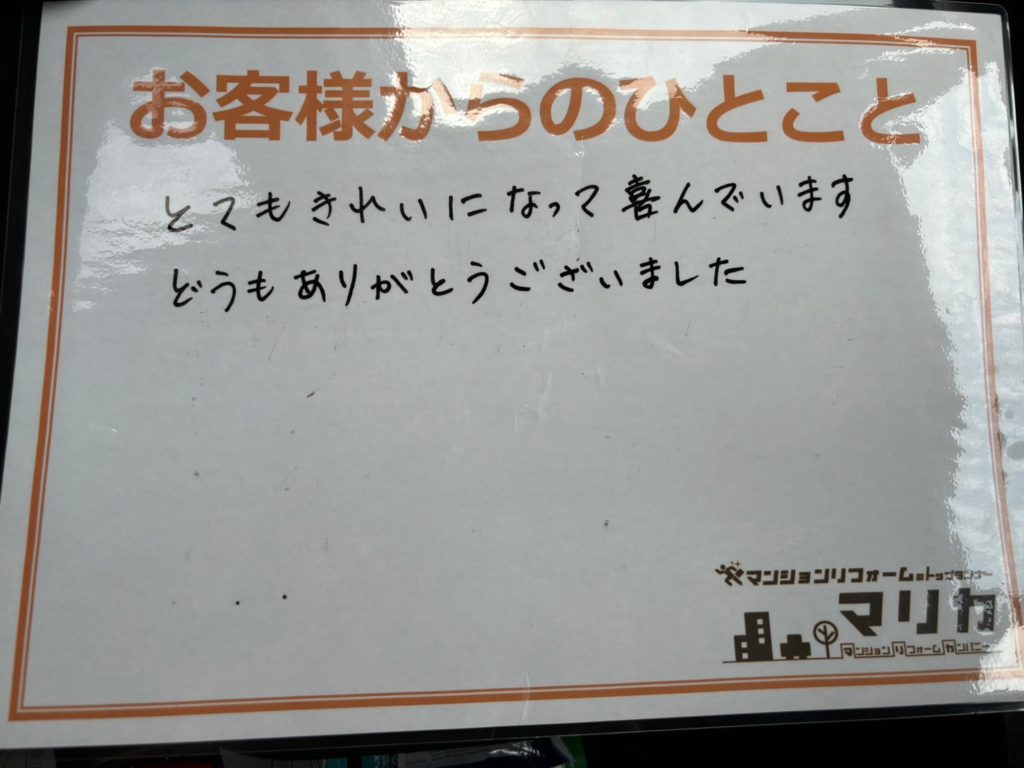 お客様からのひとこと
とてもきれいになって喜んでいます
どうもありがとうございました
マンションリフォームのトップランナー
マリカ
マンションリフォームカンパニー